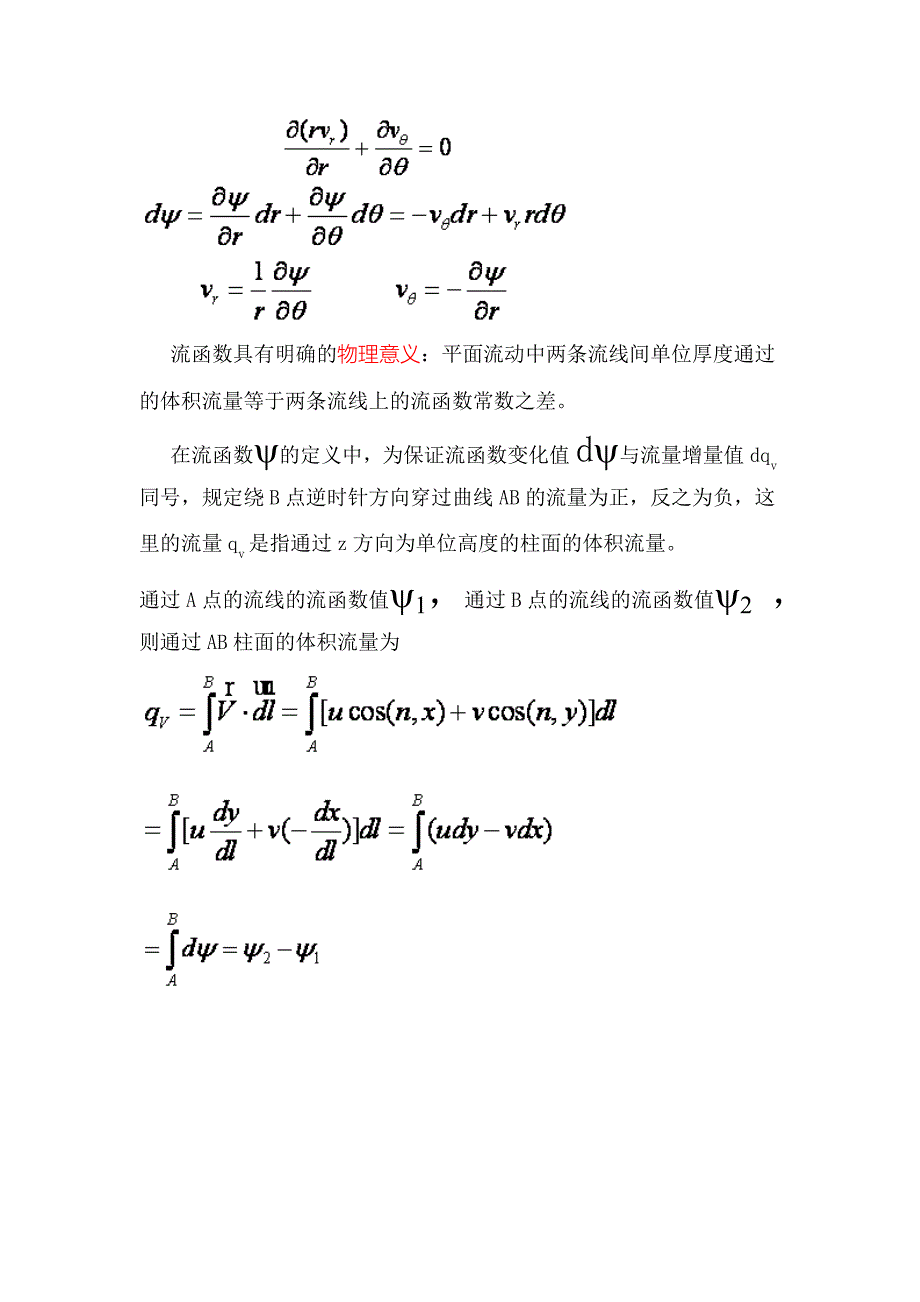 ∂(rv_r)/∂r + ∂v_θ/∂θ = 0
dψ = ∂ψ/∂r dr + ∂ψ/∂θ dθ = −v_θ dr + v_r rdθ
v_r = 1/r ∂ψ/∂θ    v_θ = −∂ψ/∂r
流函数具有明确的物理意义：平面流动中两条流线间单位厚度通过
的体积流量等于两条流线上的流函数常数之差。
在流函数ψ的定义中，为保证流函数变化值dψ与流量增量值dq_v
同号，规定绕B点逆时针方向穿过曲线AB的流量为正，反之为负，这
里的流量q_v是指通过z方向为单位高度的柱面的体积流量。
通过A点的流线的流函数值ψ1， 通过B点的流线的流函数值ψ2 ，
则通过AB柱面的体积流量为
q_V = ∫_A^B V · dl = ∫_A^B [u cos(n, x) + v cos(n, y)]dl
= ∫_A^B [u dy/dl + v(− dx/dl)]dl = ∫_A^B (udy − vdx)
= ∫_A^B dψ = ψ_2 − ψ_1